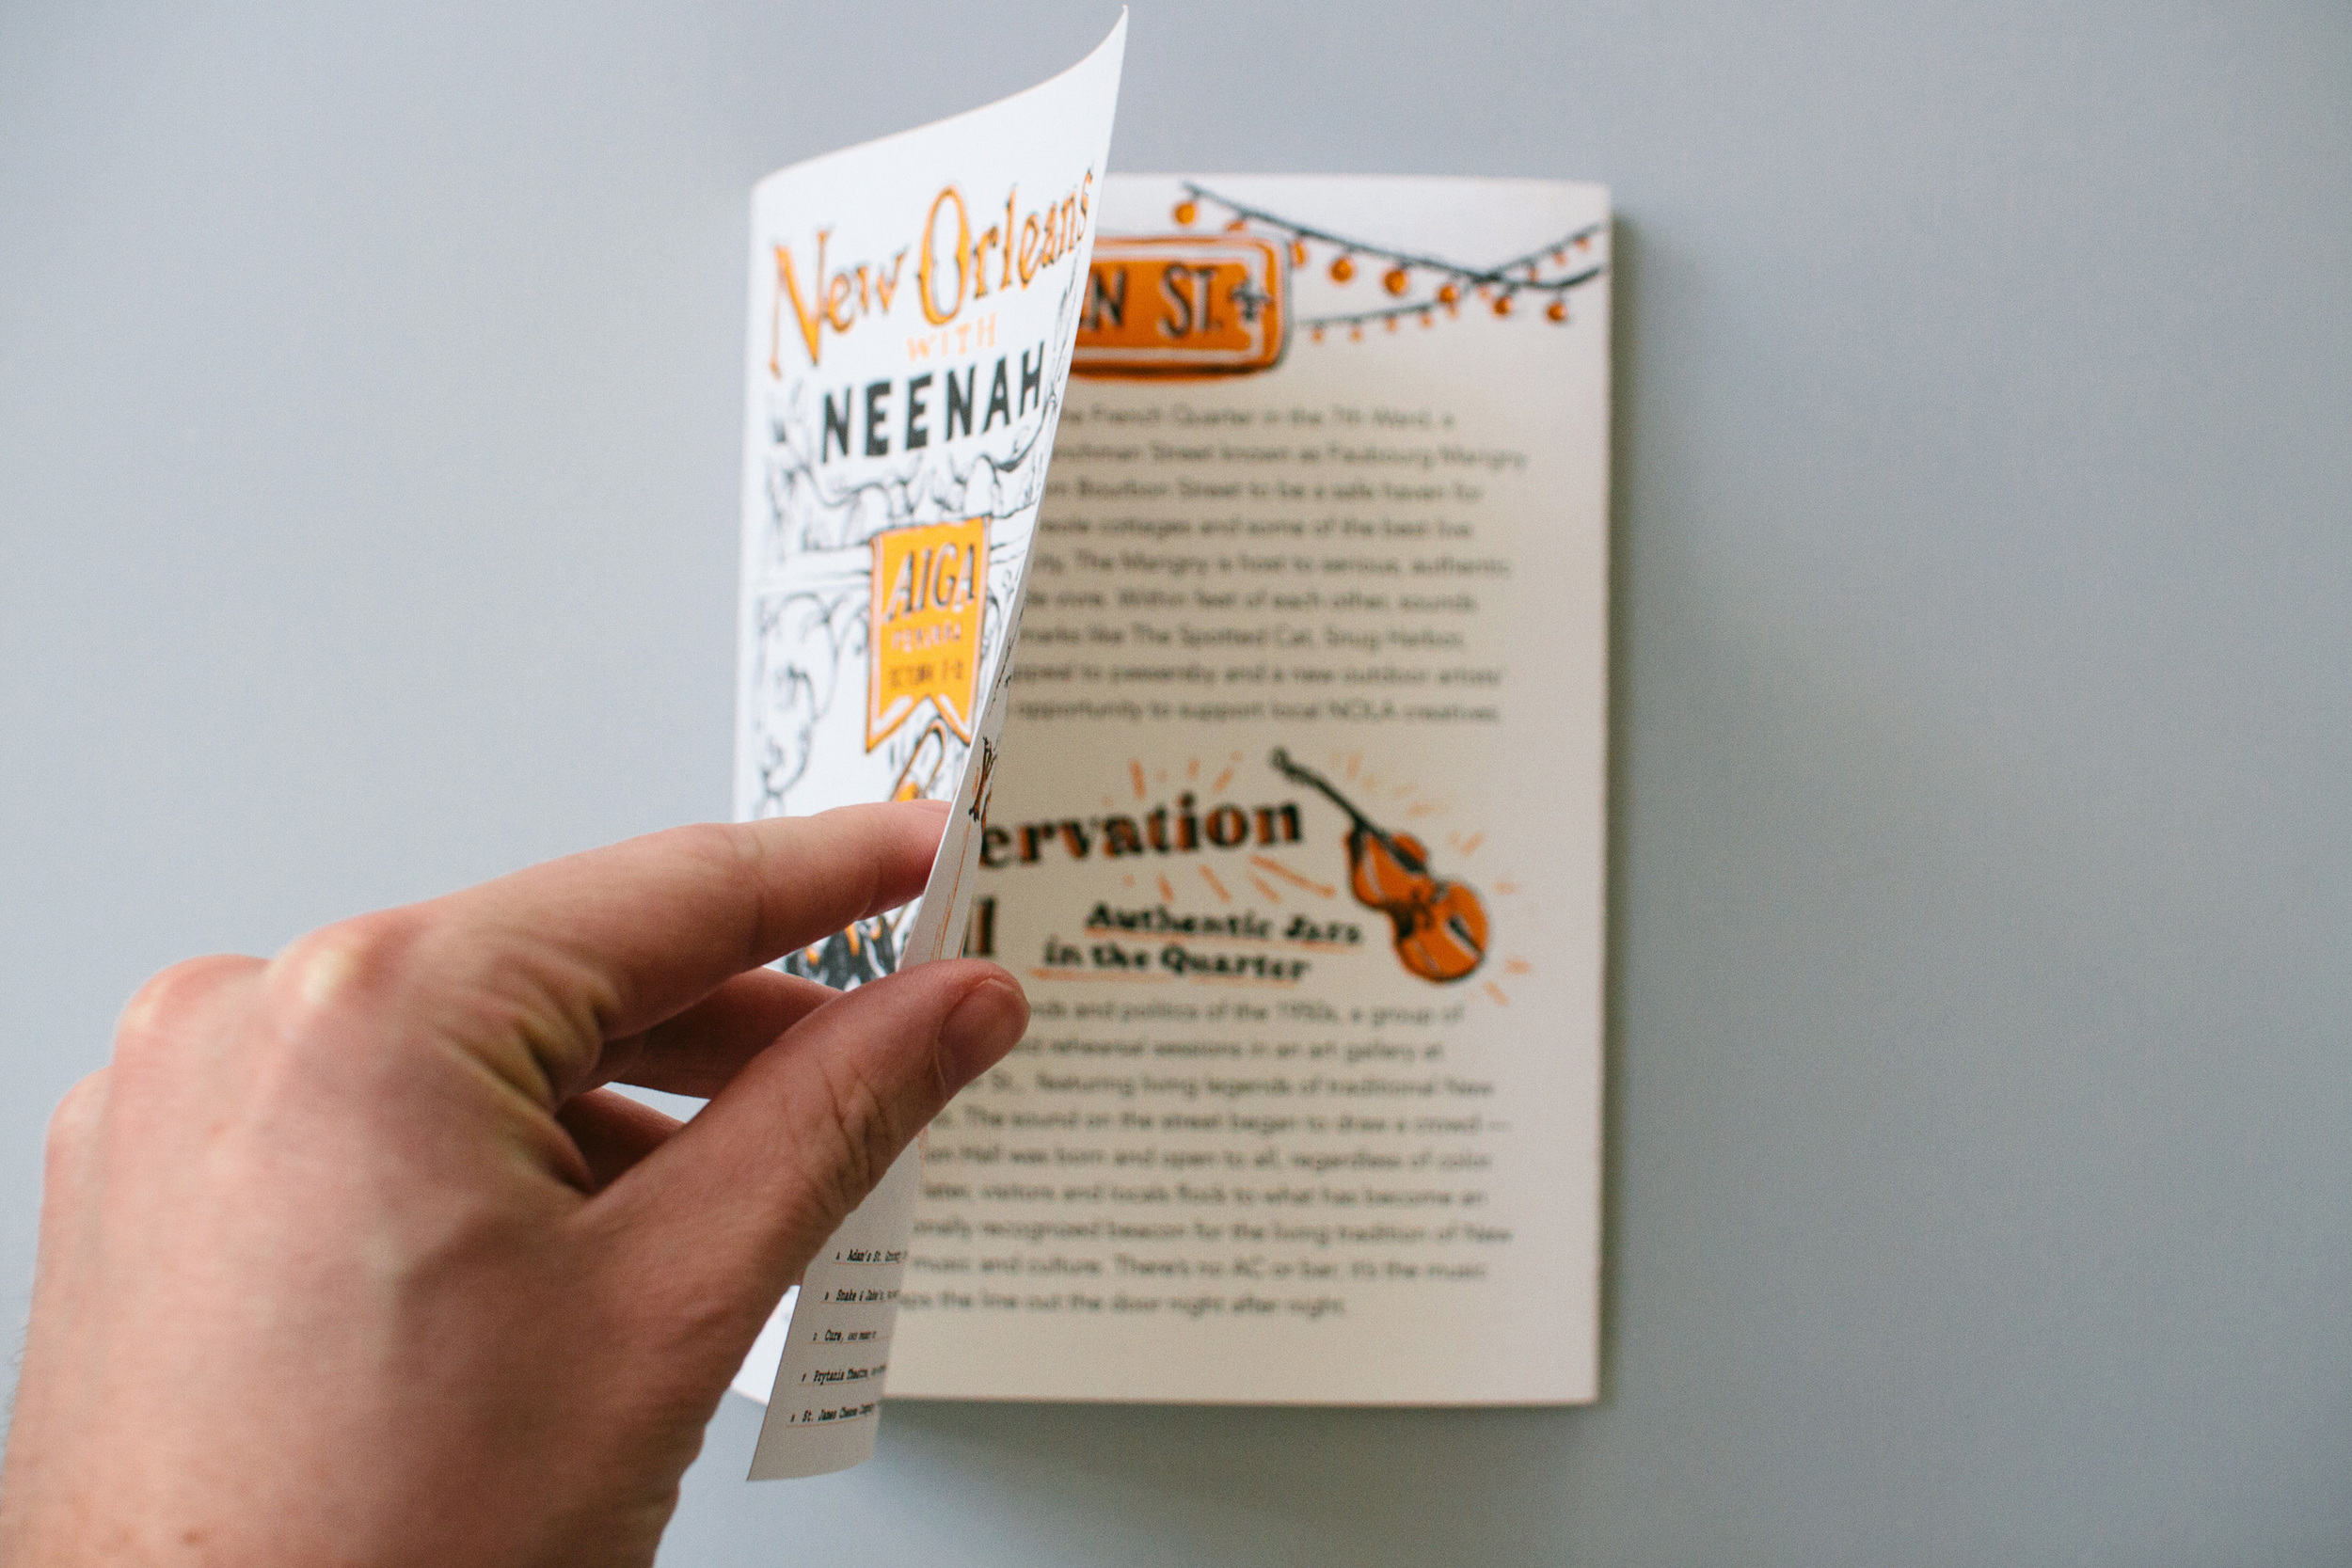 New Orleans
WITH
NEENAH
AIGA
Adam's St.
Snake & Jake's,
Cure,
Prytania Theatre,
St. James Cheese Company
N ST.
French Quarter in the 7th Ward, a
Street known as Faubourg Marigny
Bourbon Street to be a safe haven for
cottages and some of the best live
The Marigny is host to serious, authentic
Within feet of each other, sounds
marks like The Spotted Cat, Snug Harbor,
to passersby and a new outdoor artists'
opportunity to support local NOLA creatives.
ervation
ll
Authentic Jazz
in the Quarter
and politics of the 1950s, a group of
rehearsal sessions in an art gallery at
St., featuring living legends of traditional New
The sound on the street began to draw a crowd —
Hall was born and open to all, regardless of color
later, visitors and locals flock to what has become an
onally recognized beacon for the living tradition of New
music and culture. There's no AC or bar; it's the music
the line out the door night after night.